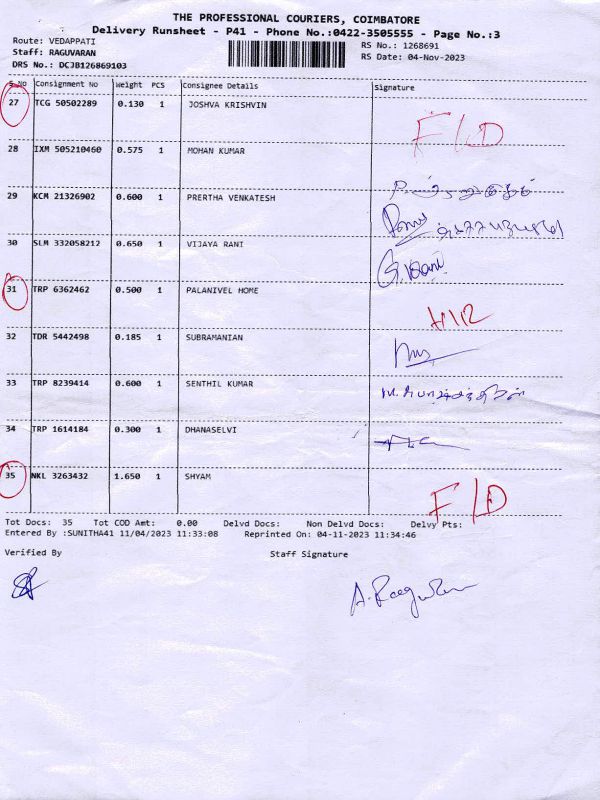 THE PROFESSIONAL COURIERS, COIMBATORE
Delivery Runsheet - P41 - Phone No.:0422-3505555 - Page No.:3
Route: VEDAPPATI
RS No.: 1268691
Staff: RAGUVARAN
RS Date: 04-Nov-2023
DRS No.: DCJB126869103
S.No Consignment No Weight PCS Consignee Details Signature
27 TCG 50502289 0.130 1 JOSHVA KRISHVIN F/D
28 IXM 505210460 0.575 1 MOHAN KUMAR
29 KCM 21326902 0.600 1 PRERTHA VENKATESH
30 SLM 332058212 0.650 1 VIJAYA RANI
31 TRP 6362462 0.500 1 PALANIVEL HOME
32 TDR 5442498 0.185 1 SUBRAMANIAN
33 TRP 8239414 0.600 1 SENTHIL KUMAR
34 TRP 1614184 0.300 1 DHANASELVI
35 NKL 3263432 1.650 1 SHYAM F/D
Tot Docs: 35 Tot COD Amt: 0.00 Delvd Docs: Non Delvd Docs: Delvy Pts:
Entered By :SUNITHA41 11/04/2023 11:33:08 Reprinted On: 04-11-2023 11:34:46
Verified By Staff Signature